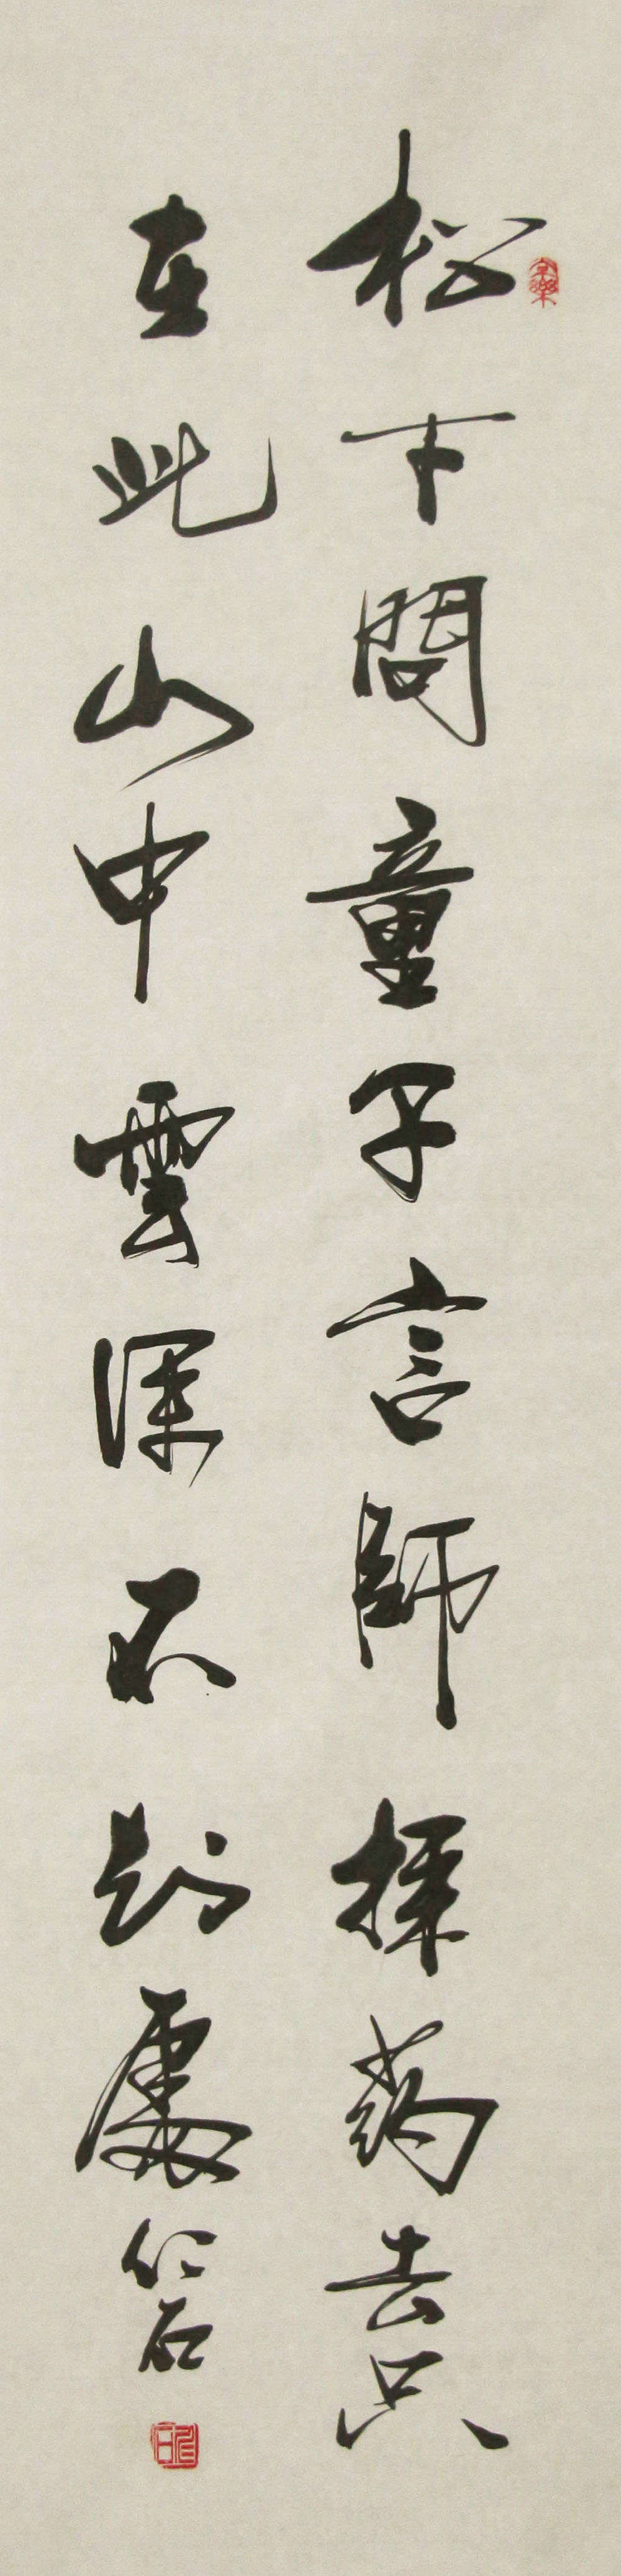 松下問童子言師採药去只
在此山中雲深不知處 仁石